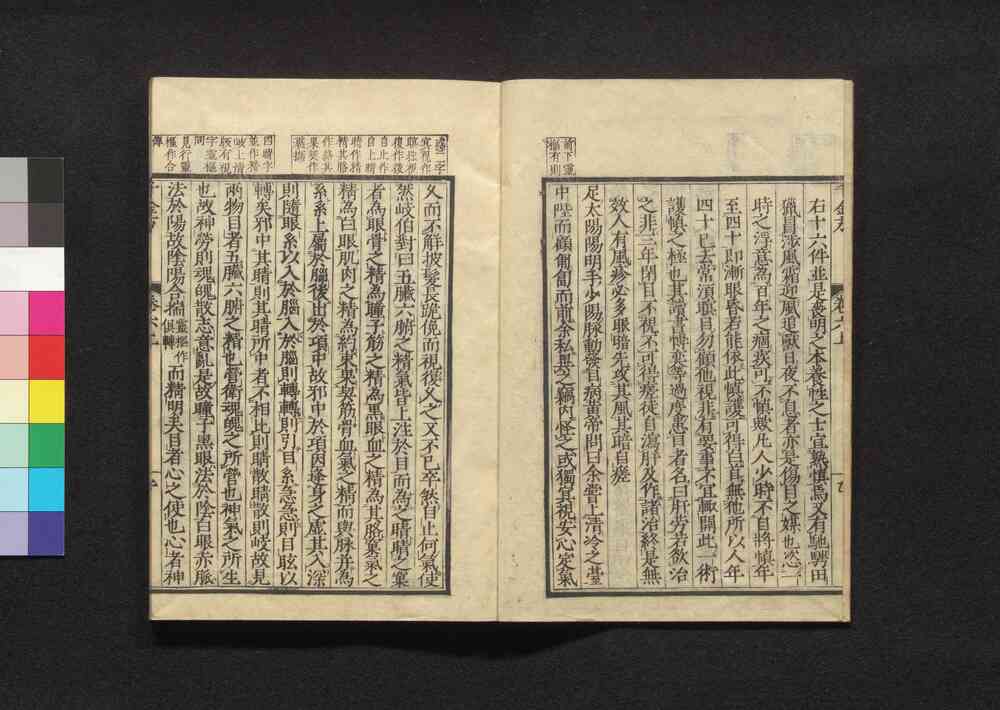 前下靈
樞有則
右十六件並是喪明之本養性之士宜熟慎焉又有馳騁田
獵冒涉風霜迎風追獸日夜不息者亦是傷目之媒也恣一
時之浮意為百年之痼疾可不慎歟凡人少時不自將慎年
至四十即漸眼昏若能依此慎護可得白首無他所以人年
四十已去常須瞑目勿顧他視非有要事不宜輒開此一術
護慎之極也其讀書博奕等過度患目者名曰肝勞若欲治
之非三年閉目不視不可得瘥徒自瀉肝及作諸治終是無
效人有風疹必多眼暗先攻其風其暗自瘥
足太陽陽明手少陽脉動發目病黃帝問曰余嘗上清冷之臺
中陛而顧匍匐而前余私異之竊内怪之或獨冥視安心定氣
冥視作
復作後
自此作
自上睛
睛作精
精其胳
作絡其
裹契作
四睛字
並作精
版有視
字靈樞
同
樞作合
傳
久而不解披髮長跪俛而視後久之又不已卒然自止何氣使
然岐伯對曰五臟六腑之精氣皆上注於目而為之睛睛之窠
者為眼骨之精為瞳子筋之精為黑眼血之精為其胳窠氣之
精為白眼肌肉之精為約束裹契筋骨血氣之精而與脉并為
系系上屬於腦後出於項中故邪中於項因逢身之虛其入深
則隨眼系以入於腦入於腦則轉轉則引目系急急則目眩以
轉矣邪中其睛則其睛所中者不相比則睛散睛散則岐故見
兩物目者五臟六腑之精也營衛魂魄之所營也神氣之所生
也故神勞則魂魄散志意亂是故瞳子黑眼法於陰白眼赤脉
法於陽故陰陽合揣靈樞作俱轉而精明夫目者心之使也心者神